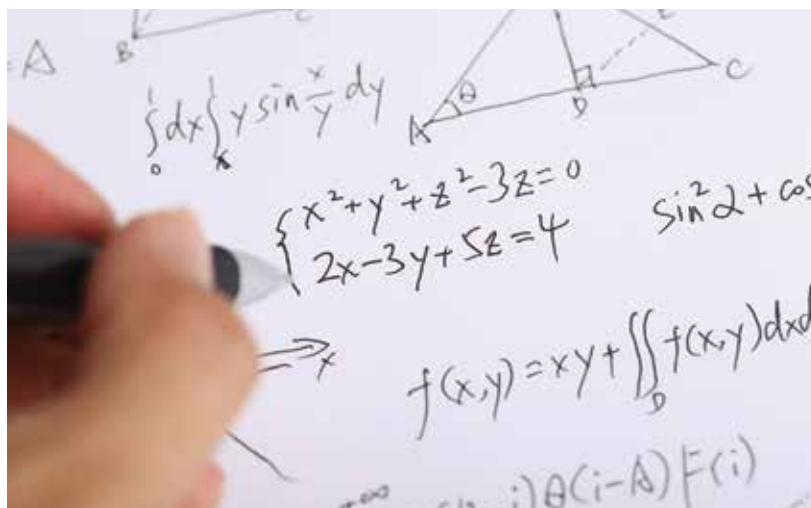 B C
= A
A θ D C
∫₀¹ dx ∫ₓ¹ y sin x/y dy
{ x² + y² + z² - 3z = 0
2x - 3y + 5z = 4
sin² α + cos
x
f(x,y) = xy + ∬_D f(x,y) dxd
+∞
i) θ(i-A) F(i)